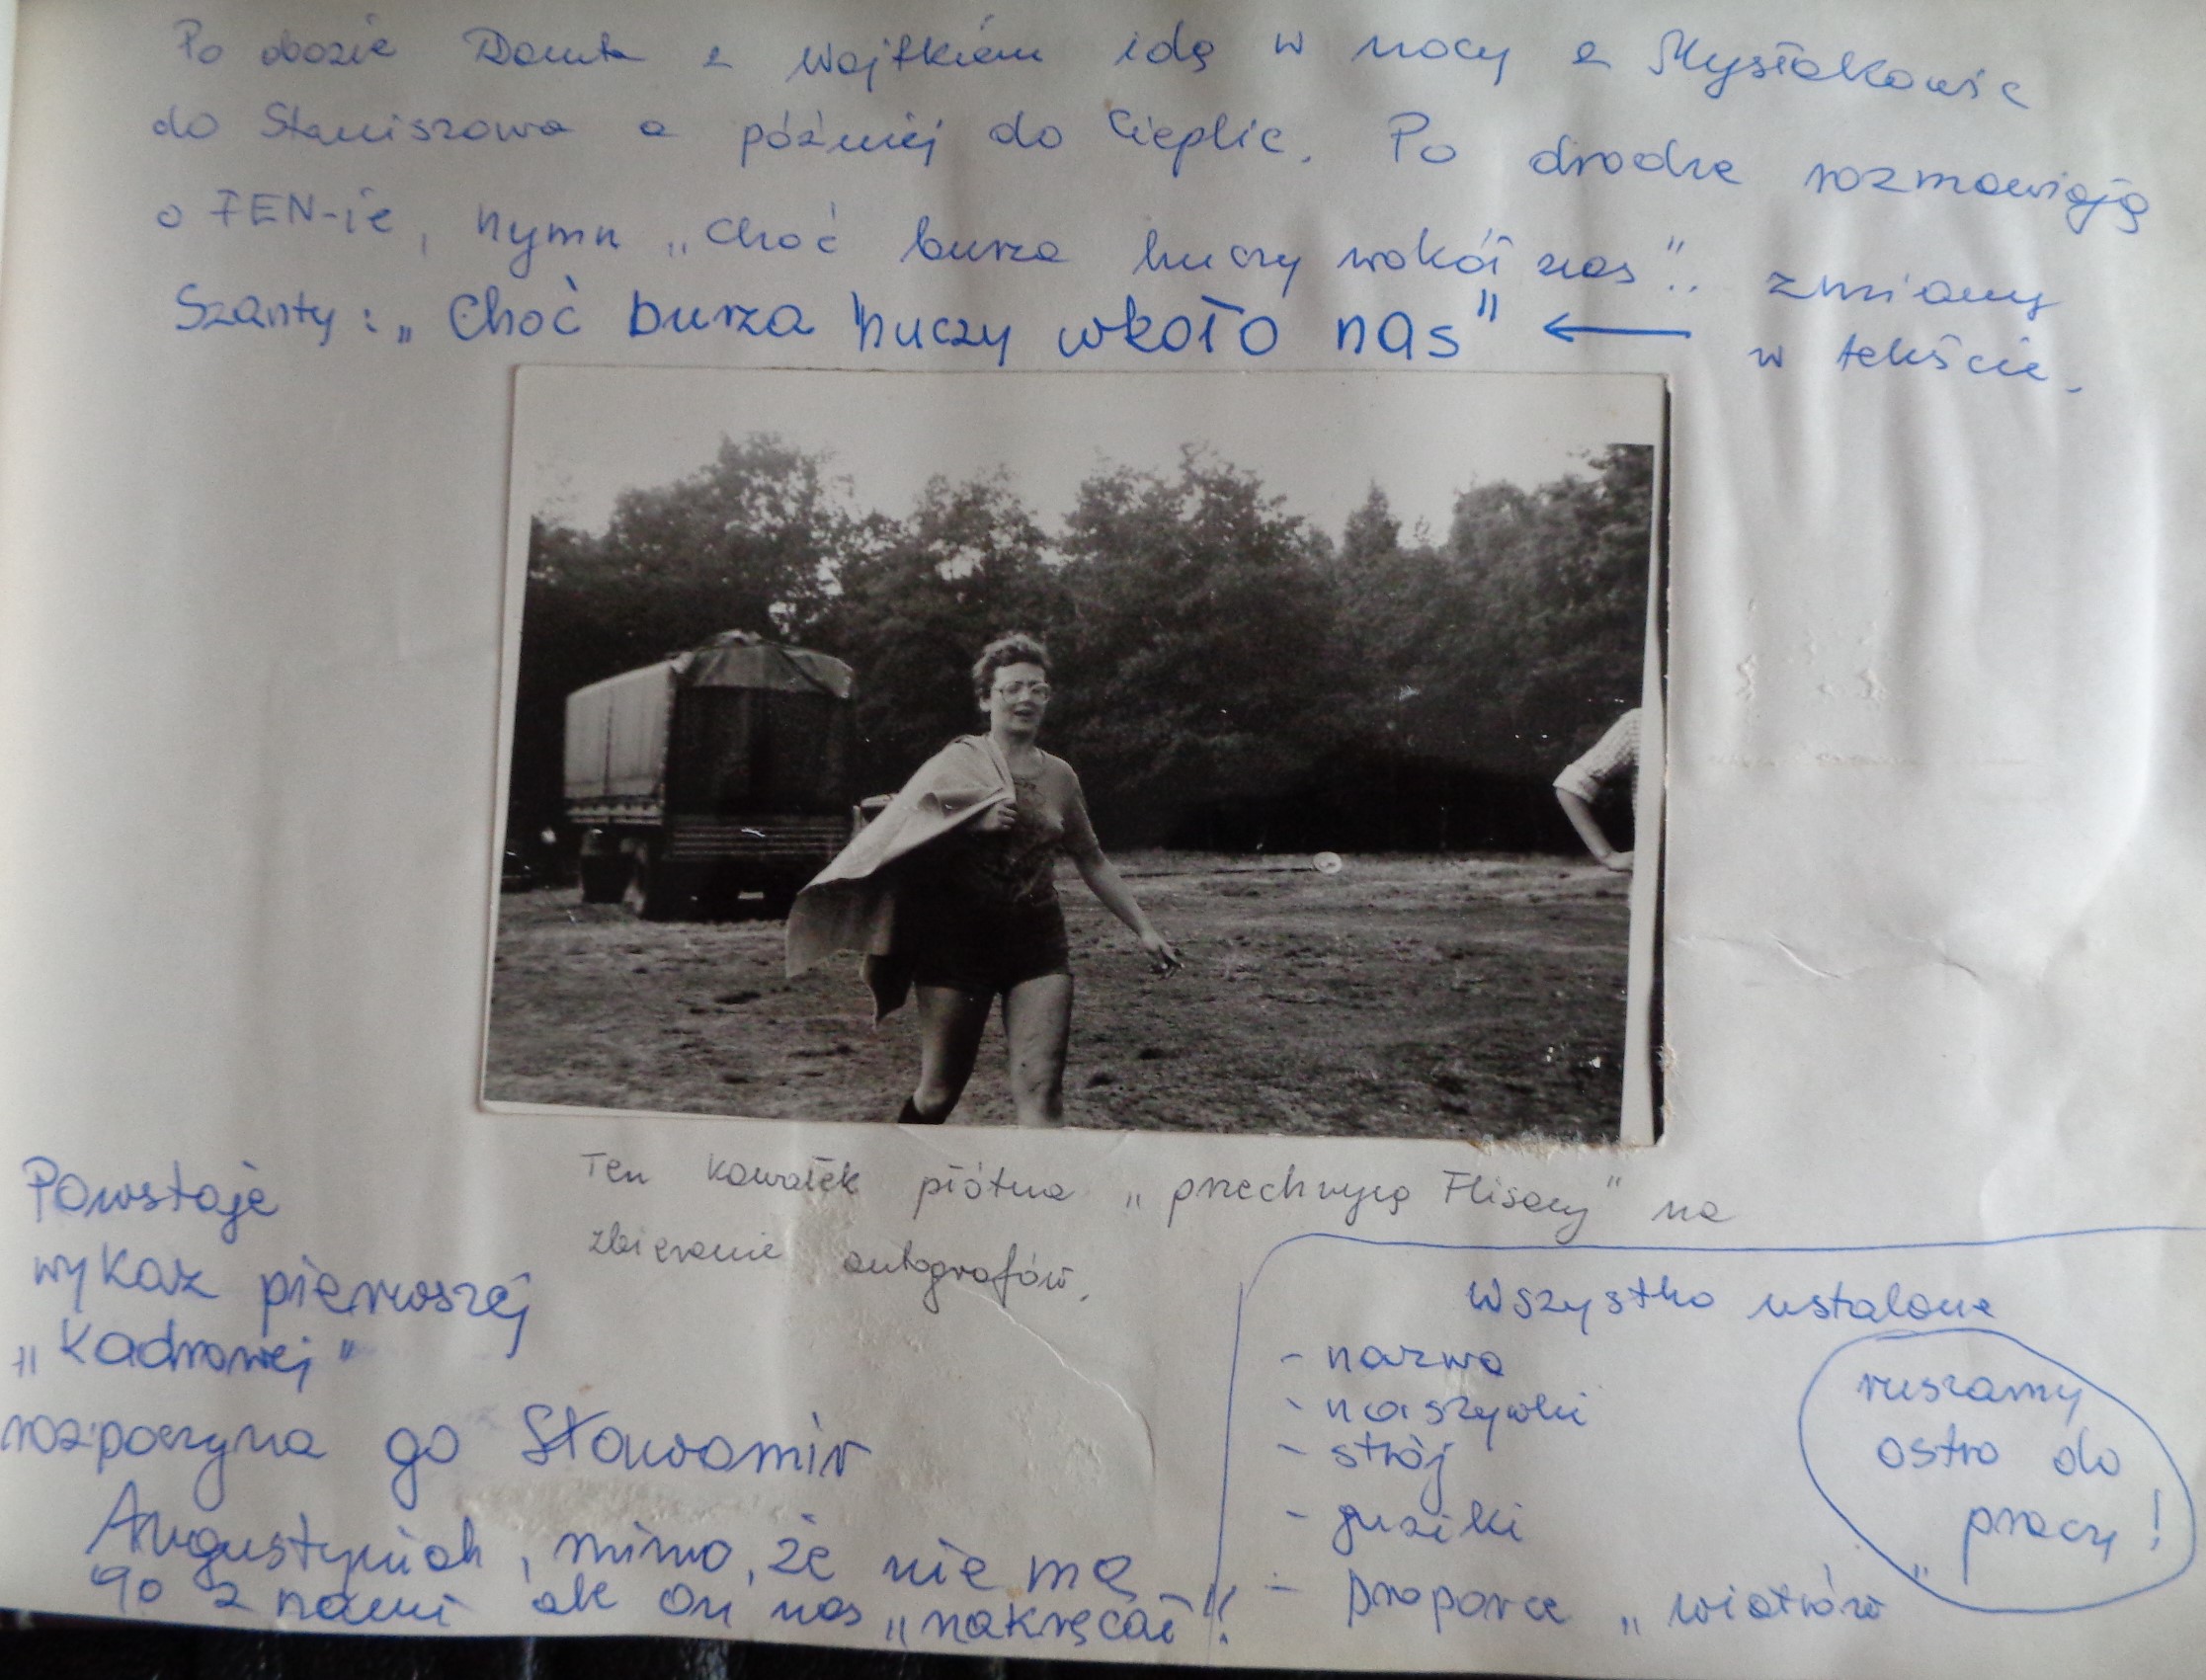 Po obozie Danuta z Wojtkiem idą w nocy z Mysłakowic
do Staniszowa a później do Cieplic. Po drodze rozmawiają
o FEN-ie, hymn „Choć burza huczy wokół nas".. zmiany
Szanty: „Choć burza huczy wkoło nas" ←
w tekście.
Ten kawałek płótna „przechwycą Flisacy" na
zbieranie autografów.
Powstaje
wykaz pierwszej
„Kadrowej"
rozpoczyna go Sławomir
Augustyniak, mimo, że nie ma
go z nami ale On nas „nakręcał"!
Wszystko ustalone
- nazwa
- naszywki
- strój
- guziki
- Proporce „wiatrów"
ruszamy
ostro do
pracy!